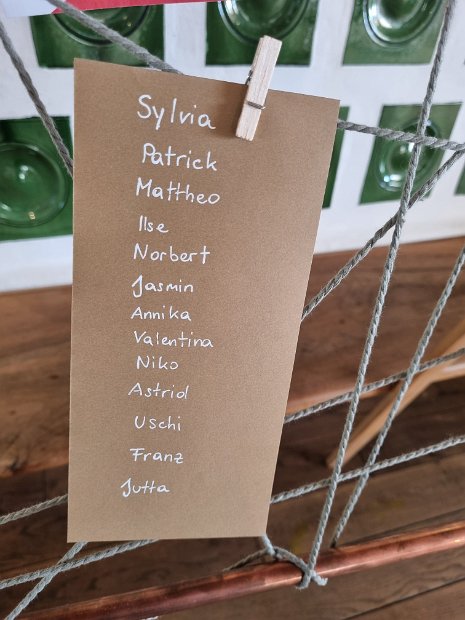 Sylvia
Patrick
Mattheo
Ilse
Norbert
Jasmin
Annika
Valentina
Niko
Astrid
Uschi
Franz
Jutta